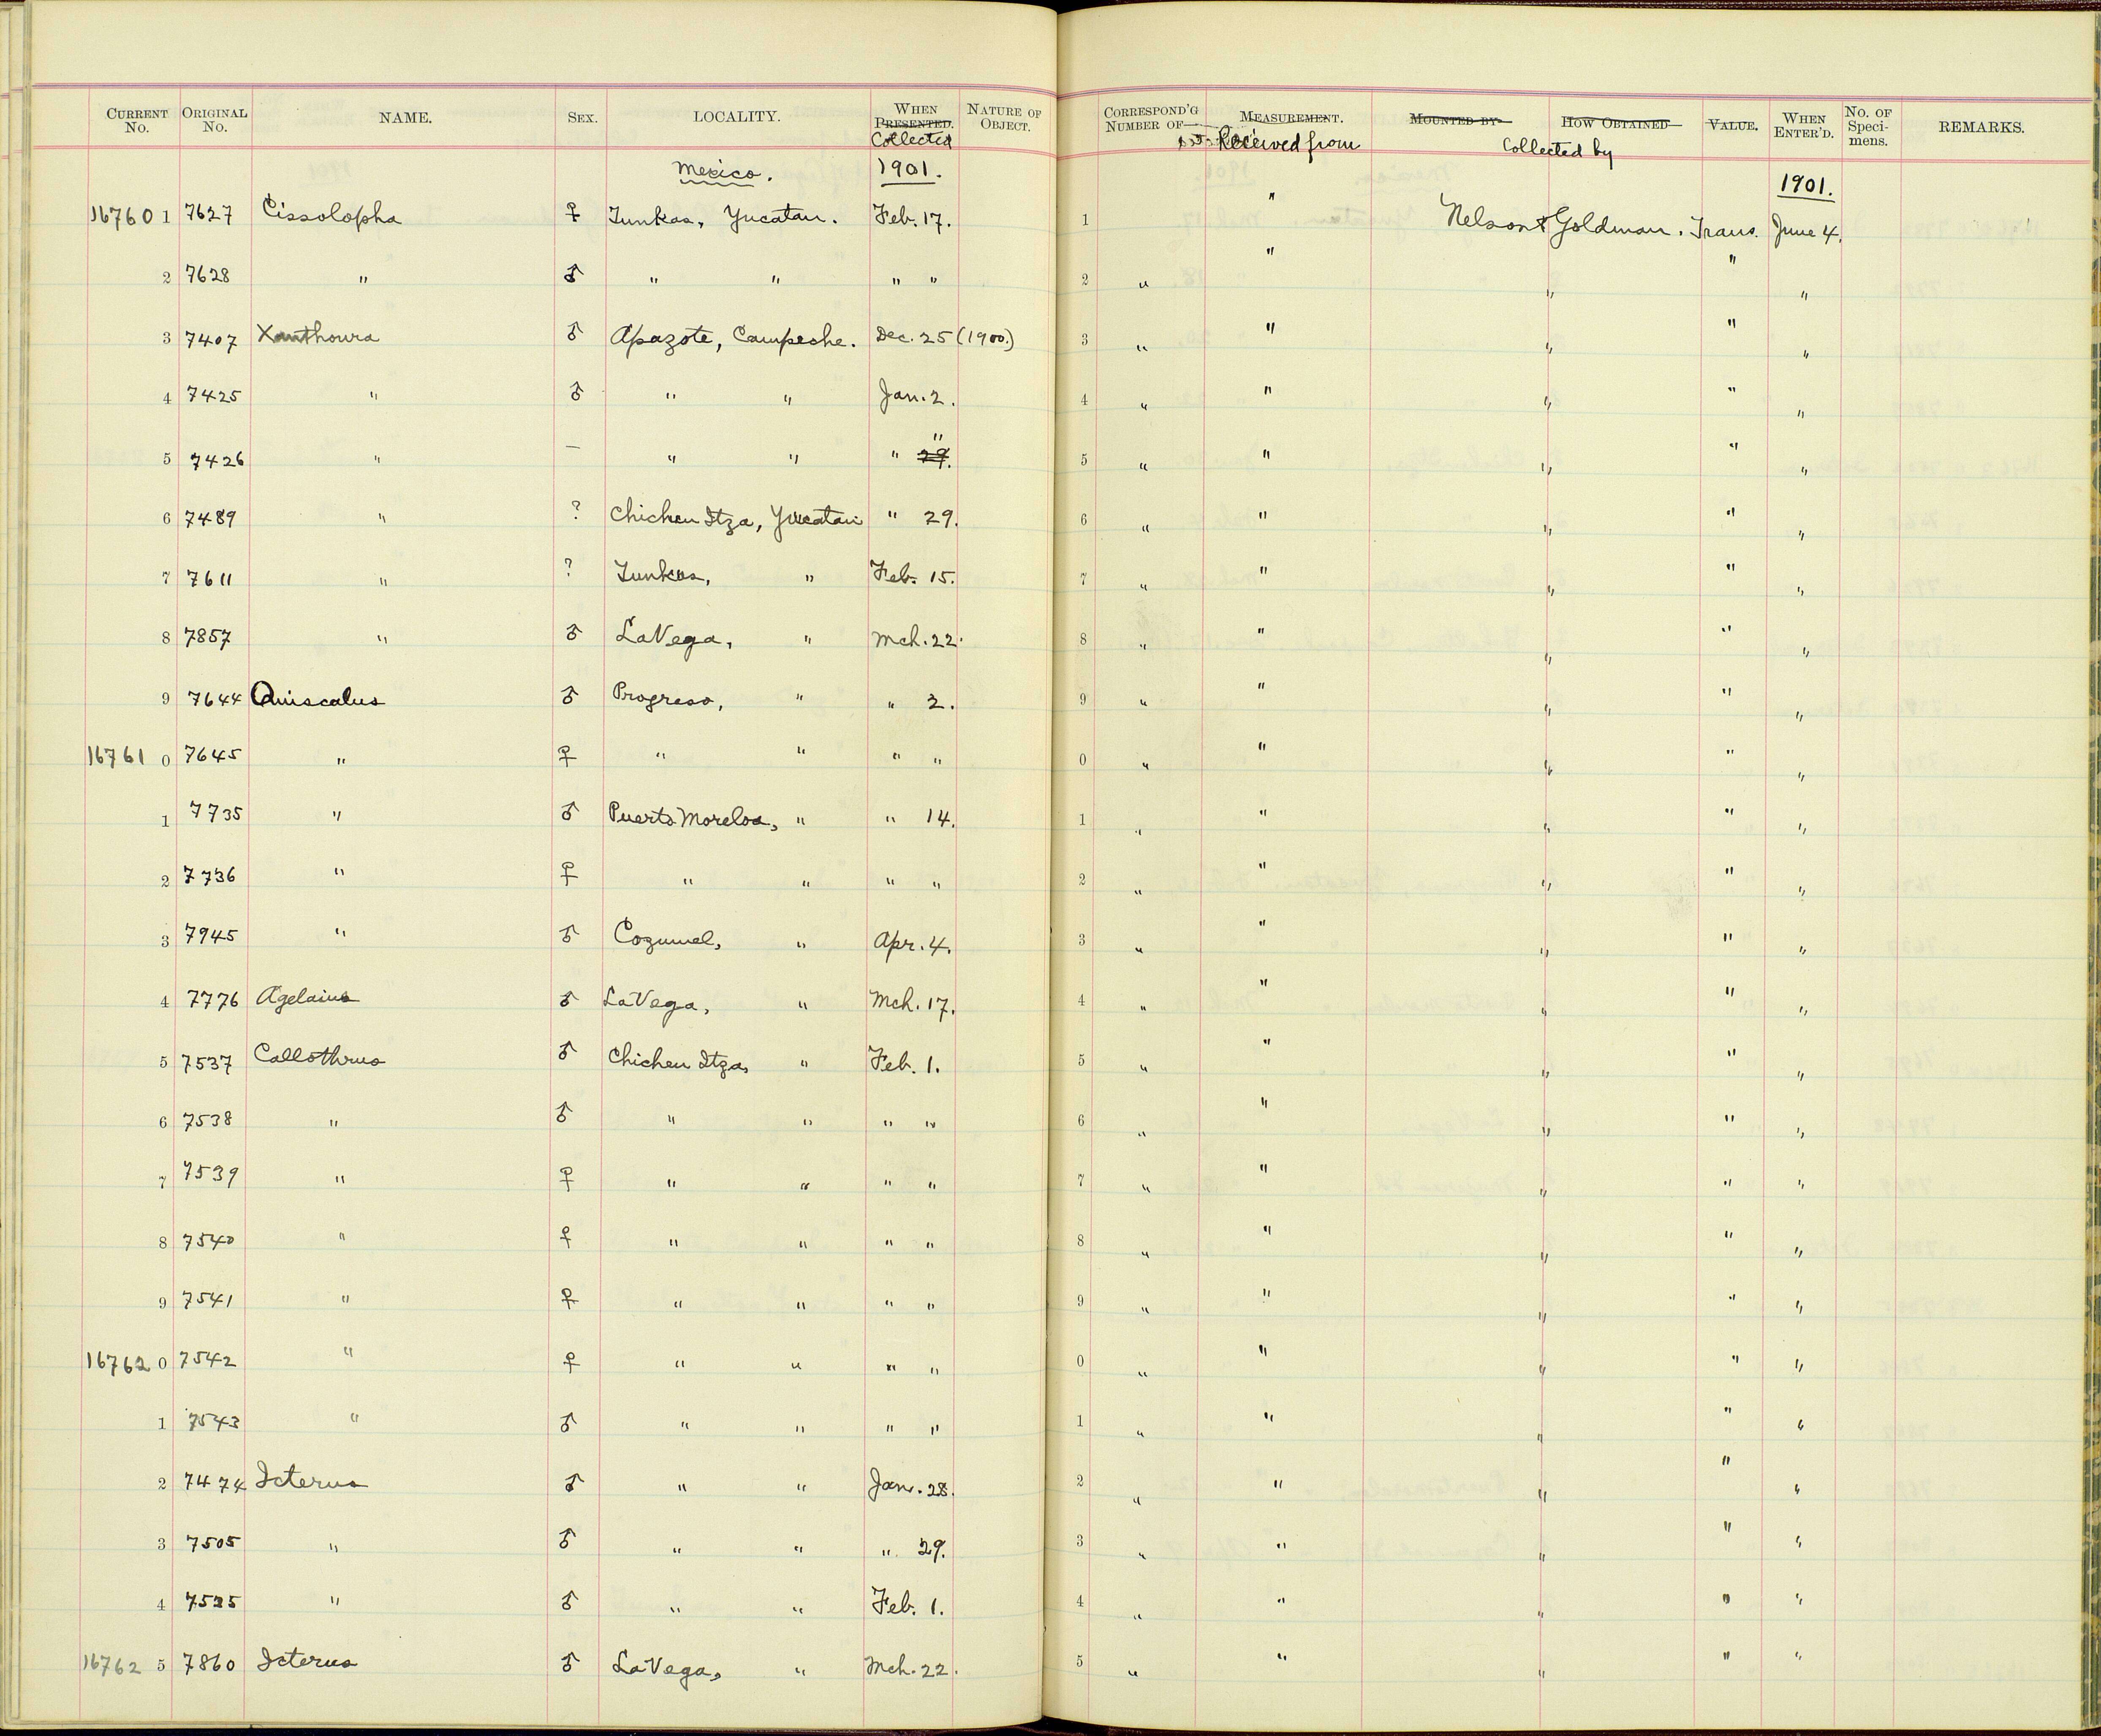 CURRENT No. ORIGINAL No. NAME. SEX. LOCALITY. WHEN PRESENTED. Collected NATURE OF OBJECT. CORRESPOND'G NUMBER OF MEASUREMENT. Received from MOUNTED BY HOW OBTAINED Collected by VALUE. WHEN ENTER'D. No. OF Speci-mens. REMARKS.
Mexico. 1901. 1901.
16760 1 7627 Cissolopha ♀ Tunkas, Yucatan. Feb. 17. 1 " Nelson & Goldman. Trans. June 4.
2 7628 " ♂ " " " " 2 " " " " "
3 7407 Xanthoura ♂ Apazote, Campeche. Dec. 25 (1900.) 3 " " " " "
4 7425 " ♂ " " Jan. 2. 4 " " " " "
5 7426 " — " " " 29. " 5 " " " " "
6 7489 " ? Chichen Itza, Yucatan " 29. 6 " " " " "
7 7611 " ? Tunkas, " Feb. 15. 7 " " " " "
8 7857 " ♂ La Vega, " Mch. 22. 8 " " " " "
9 7644 Quiscalus ♂ Progreso, " " 2. 9 " " " " "
16761 0 7645 " ♀ " " " " 0 " " " " "
1 7735 " ♂ Puerto Morelos, " " 14. 1 " " " " "
2 7736 " ♀ " " " " 2 " " " " "
3 7945 " ♂ Cozumel, " Apr. 4. 3 " " " " "
4 7776 Agelaius ♂ La Vega, " Mch. 17. 4 " " " " "
5 7537 Callothrus ♂ Chichen Itza, " Feb. 1. 5 " " " " "
6 7538 " ♂ " " " " 6 " " " " "
7 7539 " ♀ " " " " 7 " " " " "
8 7540 " ♀ " " " " 8 " " " " "
9 7541 " ♀ " " " " 9 " " " " "
16762 0 7542 " ♀ " " " " 0 " " " " "
1 7543 " ♂ " " " " 1 " " " " "
2 7474 Icterus ♂ " " Jan. 28. 2 " " " " "
3 7505 " ♂ " " " 29. 3 " " " " "
4 7525 " ♂ " " Feb. 1. 4 " " " " "
16762 5 7860 Icterus ♂ La Vega, " Mch. 22. 5 " " " " "